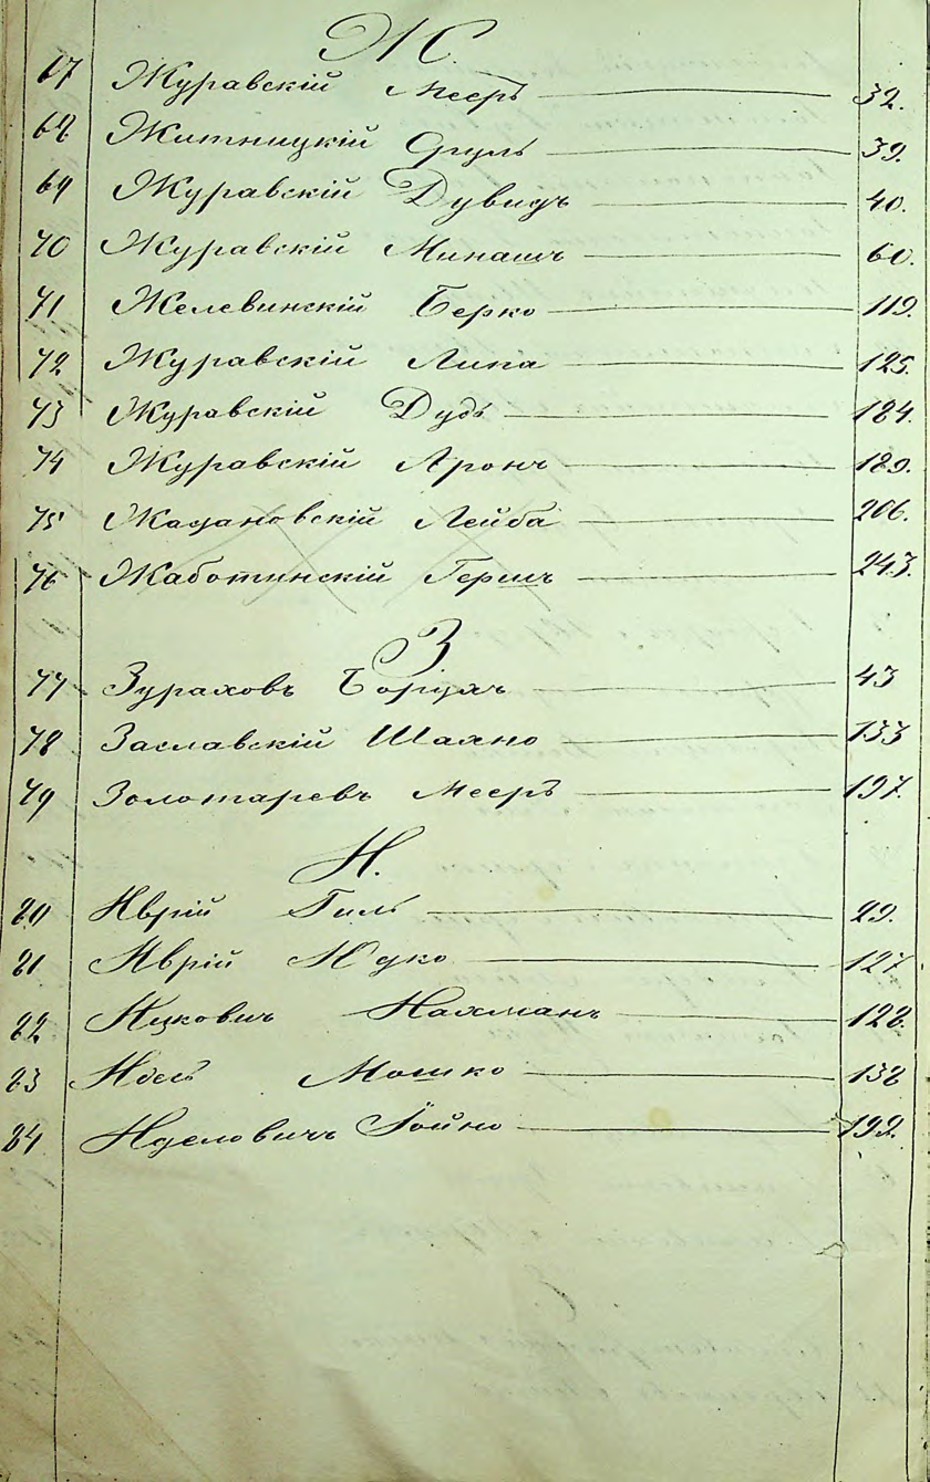 Ж.
67 Журавскій Мееръ 32.
68 Житницкій Сруль 39.
69 Журавскій Дувидъ 40.
70 Журавскій Минашъ 60.
71 Желевинскій Берко 119.
72 Журавскій Липа 125.
73 Журавскій Дудь 184.
74 Журавскій Аронъ 189.
75 Жадановскій Лейба 206.
76 Жаботинскій Гершъ 243.
З.
77 Зураховъ Борухъ 43
78 Заславскій Шахно 133
79 Золотаревъ Мееръ 197.
И.
80 Иврій Гиль 29.
81 Иврій Юдко 127
82 Ицкович Нахманъ 128.
83 Мошко 138
84 Иделовичъ Іойно 199.